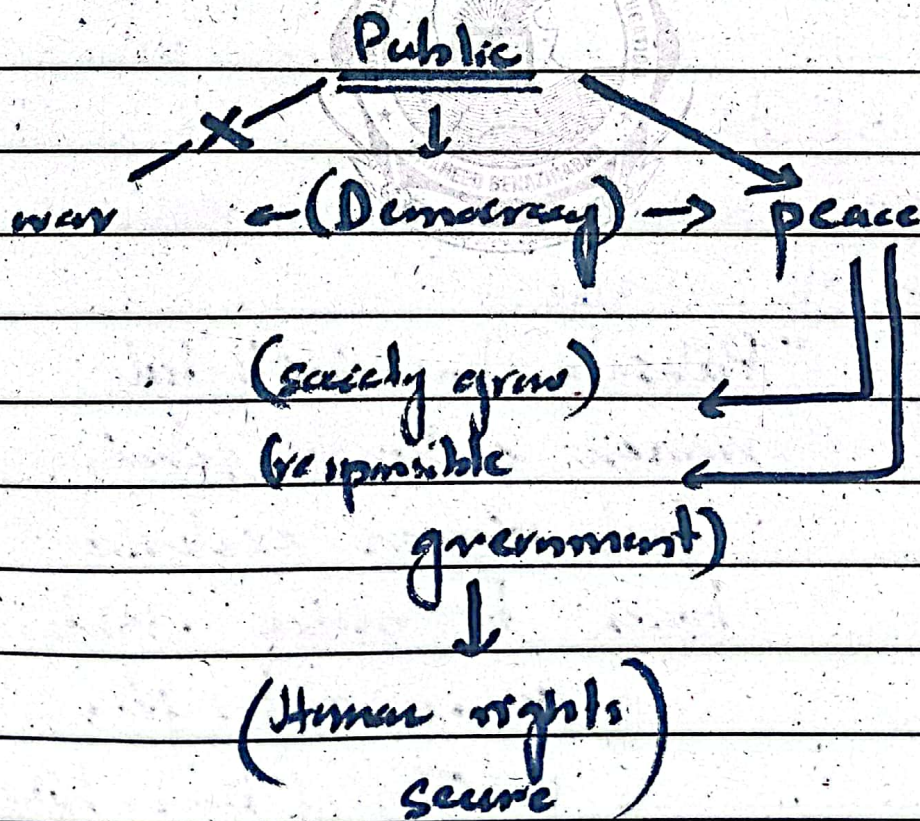 Public
war (Democracy) peace
(society grow)
(responsible
government)
(Human rights
secure